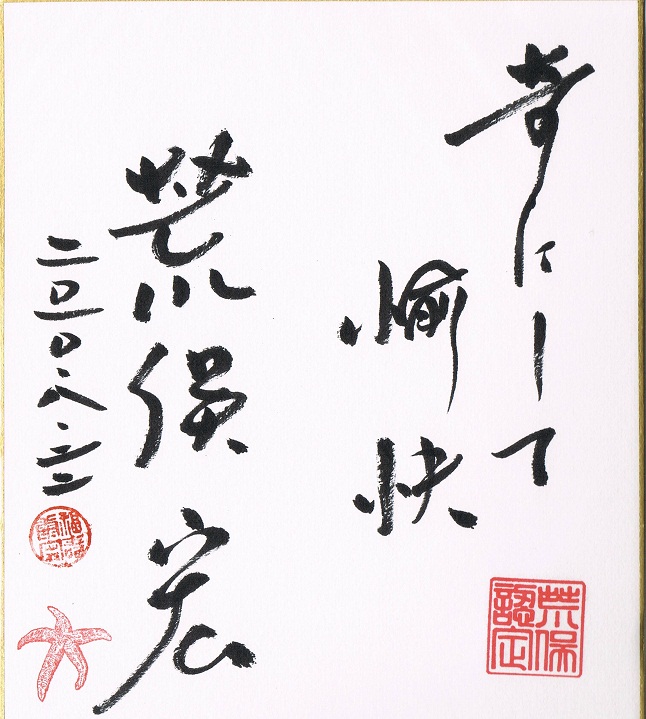 奇にして
愉快
荒俣宏
二〇一〇・八・二二
荒俣認定